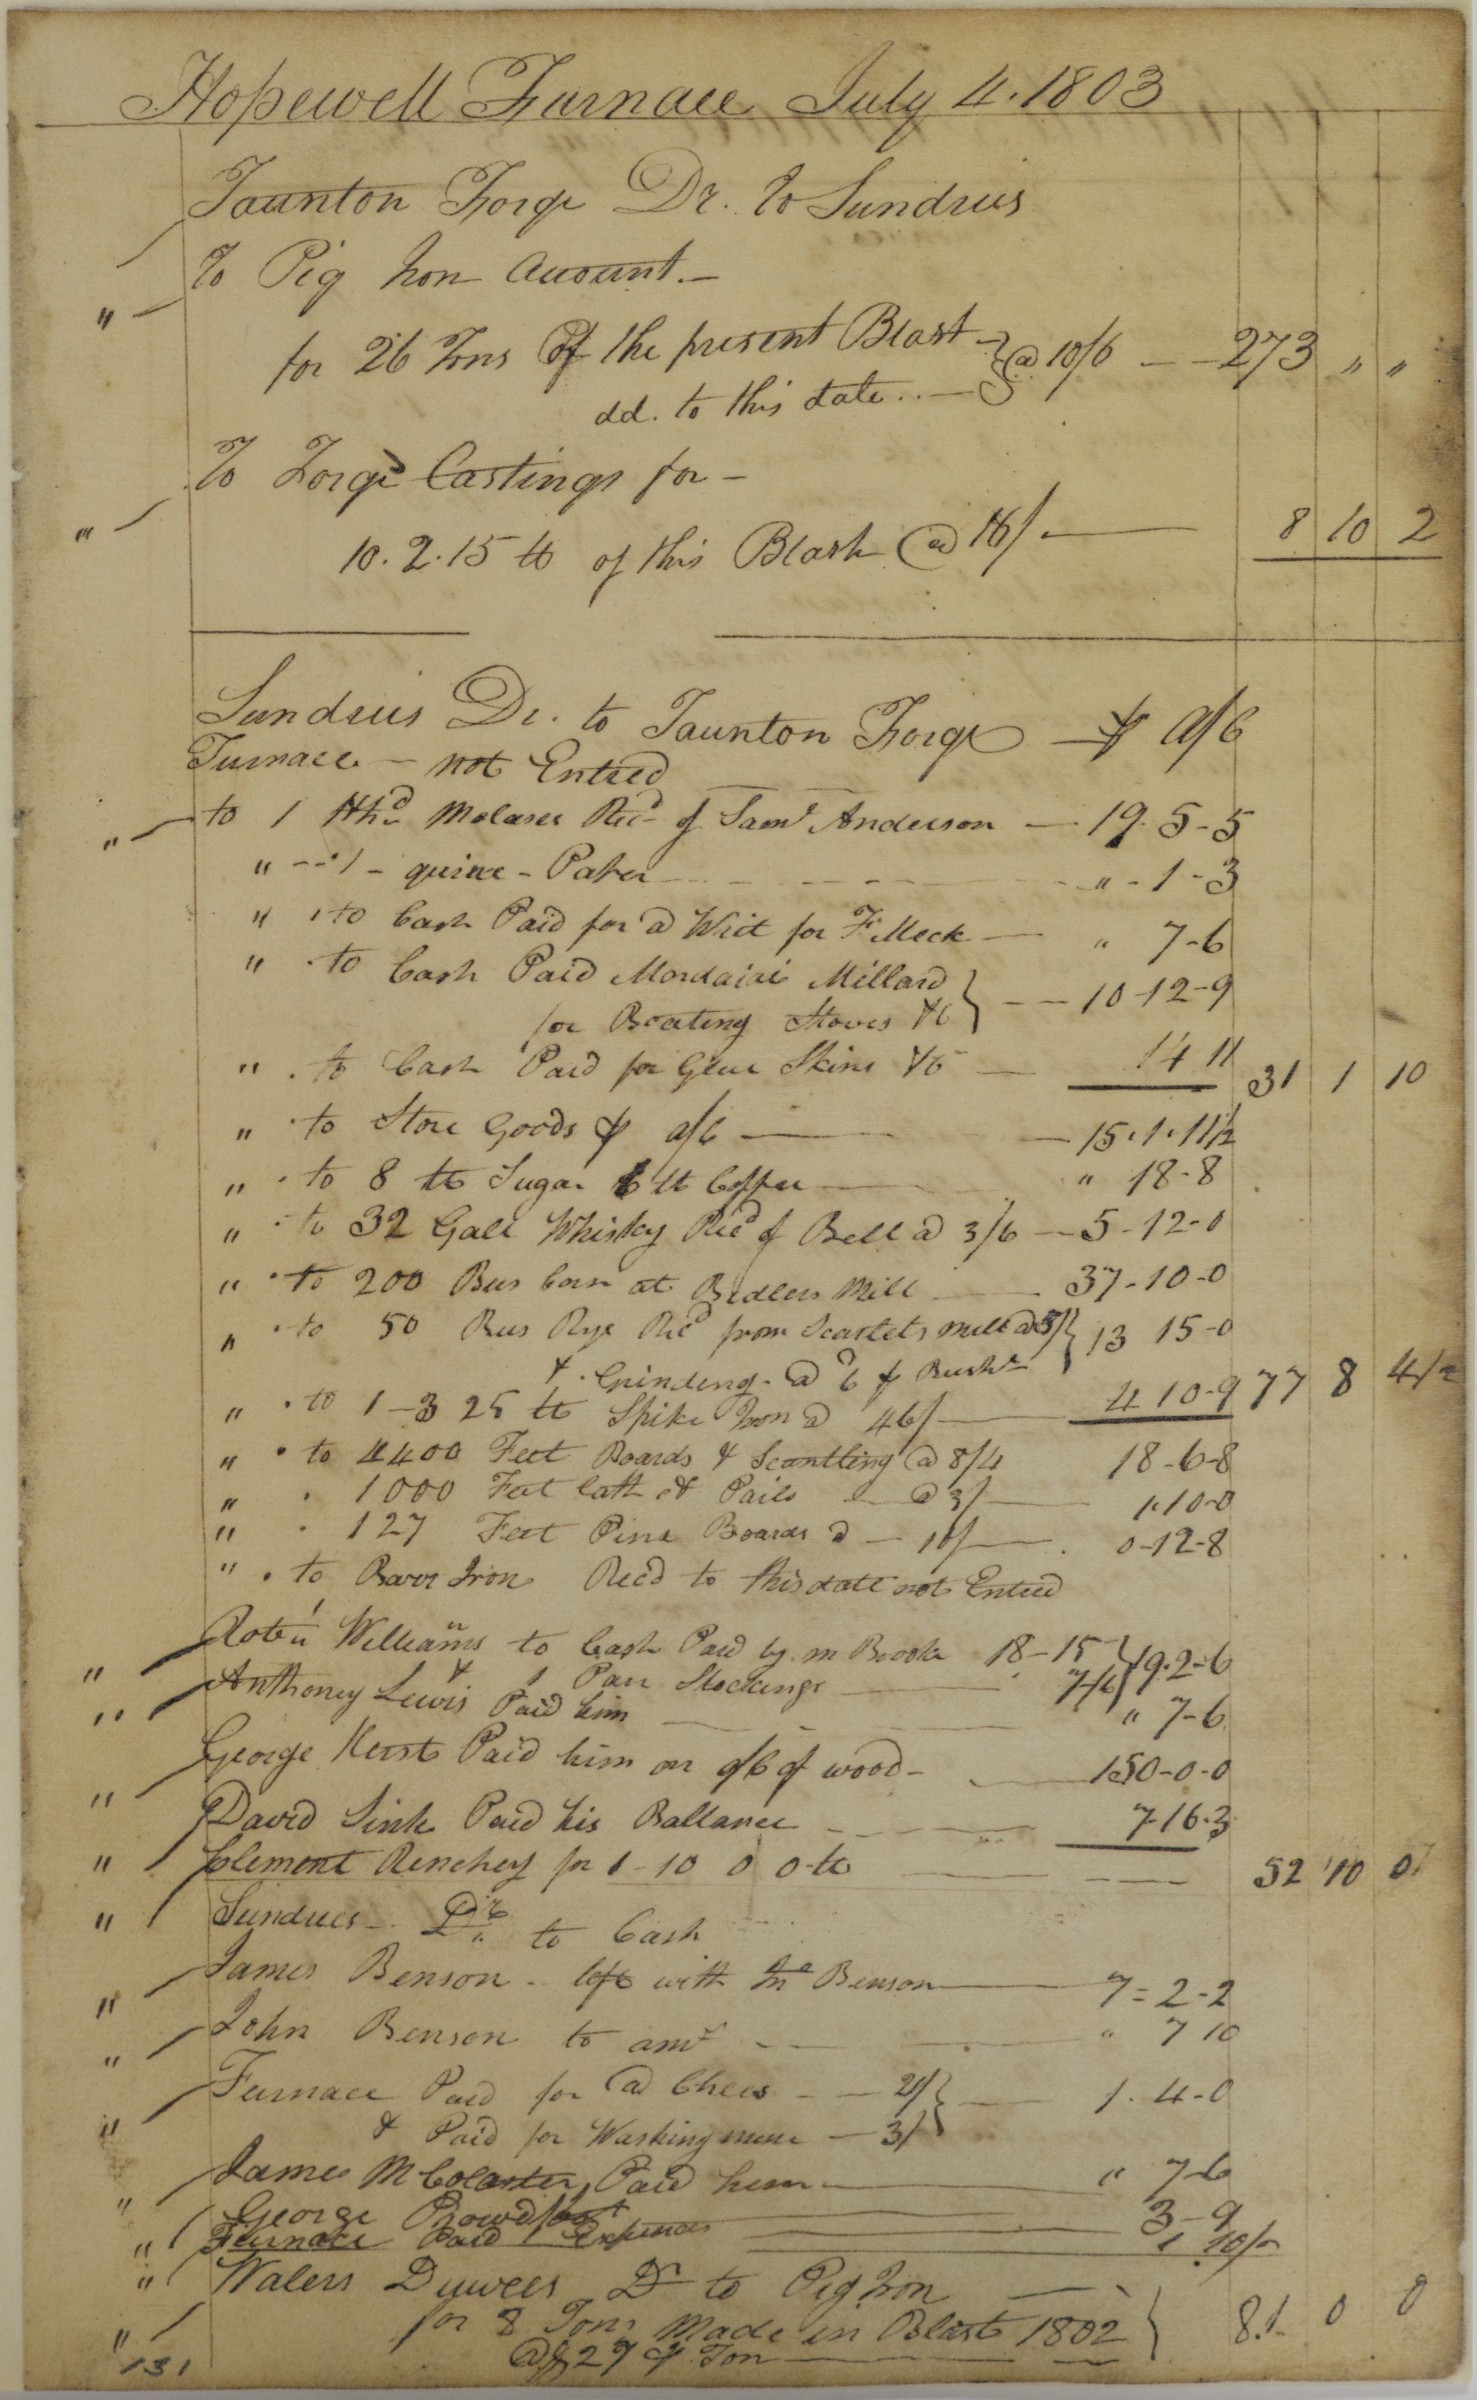 Hopewell Furnace July 4. 1803
Taunton Forge Dr. to Sundries
To Pig Iron Account. -
" for 26 Tons of the present Blast } @ 10/6 - - 273 " "
dd. to this date .. -
To Forge Castings for -
" 10. 2. 15 lb of this Blast @ 16/. 8 10 2
Sundries Dr. to Taunton Forge ⅌ a/c
Furnace - not Entred
" to 1 Hhd Molases Recd of Saml Anderson - 19. 5 - 5
" - - 1 - quire - Paper " - 1 - 3
" to Cash Paid for a Writ for F Meck - " 7 - 6
" to Cash Paid Mordaiai Millard } - - 10 - 12 - 9
for Boating Stoves &c
" to Cash Paid for Glue Skins &c - 14 11 31 1 10
" to Store Goods ⅌ a/c - 15. 1. 11½
" to 8 lb Sugar 6 lb Coffee " 18 - 8
" to 32 Gall Whisky Recd of Bell @ 3/6 - 5 - 12 - 0
" to 200 Bus Corn at Bedlers Mill 37 - 10 - 0
" to 50 Bus Rye Recd from Scarlets Mill @ 5/ } 13 15 - 0
& Grinding @ 6 ⅌ Bushl
" to 1 - 3 25 lb Spike Iron @ 46/ 4 10 - 9 77 8 4½
" to 4400 Feet Boards & Scantling @ 8/4 18 - 6 - 8
" 1000 Feet Lath & Pails @ 3/ 1. 10 - 0
" 127 Feet Pine Boards @ - 10/ 0 - 12 - 8
" to Barr Iron Recd to this date not Entred
" Williams to Cash Paid by m Brooke 18 - 15 } 19. 2 - 6
& 1 Pair Stockings 7/6
" Anthoney Lewis Paid him " 7 - 6
" George Paid him on a/c of wood - 150 - 0 - 0
" David Sink Paid his Ballance 7. 16. 3
" Clement Renchey for 1 - 10 0 0 lb 52 10 0
Sundries - Dr. to Cash
" James Benson - left with Benson 7 = 2 - 2
" John Benson to amt " 7 10
" Furnace Paid for a Chees - - 21/ } 1. 4 - 0
& Paid for Washing mine - 3/
" James McColaster, Paid him " 7 - 6
" George 3 - 9
" Furnace Paid Expences 1 10/
" Walers Duwees Dr to Pig Iron
for 8 Tons Made in Blast 1802 } 81 0 0
@ 27 ⅌ Ton
131